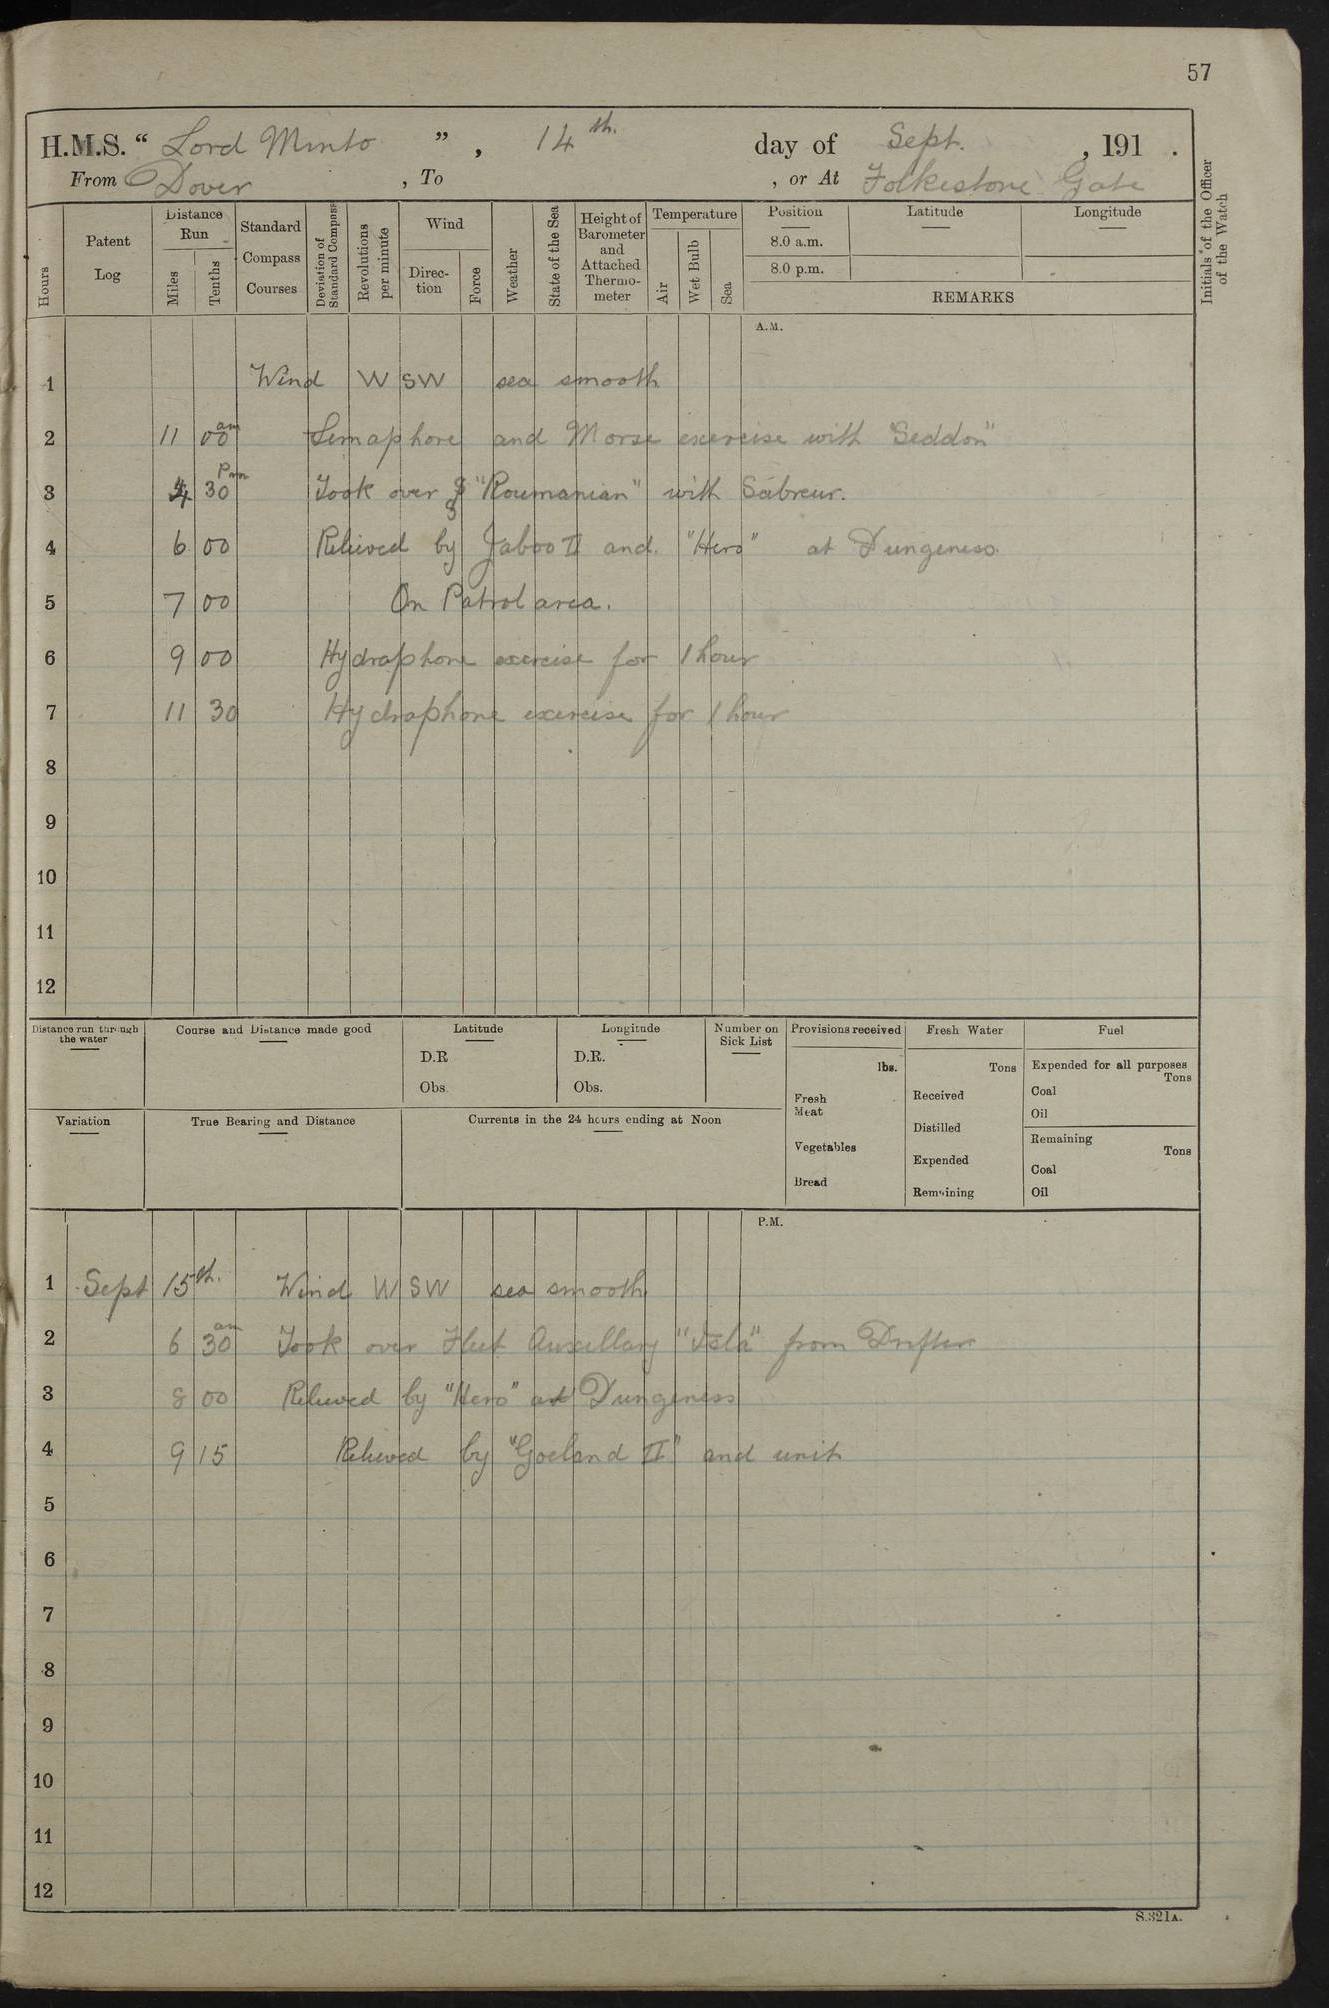 57
H.M.S. “ Lord Minto ” , 14th. day of Sept. , 191 .
From Dover , To , or At Folkestone Gate
Hours
Patent Log
Distance Run
Miles
Tenths
Standard Compass Courses
Deviation of Standard Compass
Revolutions per minute
Wind
Direc-tion
Force
Weather
State of the Sea
Height of Barometer and Attached Thermo-meter
Temperature
Air
Wet Bulb
Sea
Position
8.0 a.m.
8.0 p.m.
Latitude
Longitude
REMARKS
Initials of the Officer of the Watch
A.M.
1 Wind W SW sea smooth
2 11 00 am Semaphore and Morse exercise with "Seddon"
3 4 30 Pm Took over "Roumanian" with Sabreur.
4 6 00 Relieved by Jaboo II and "Hero" at Dungeness.
5 7 00 On Patrol area.
6 9 00 Hydraphone exercise for 1 hour
7 11 30 Hydraphone exercise for 1 hour
8
9
10
11
12
Distance run through the water
Course and Distance made good
Latitude
D.R
Obs.
Longitude
D.R.
Obs.
Number on Sick List
Provisions received
lbs.
Fresh Meat
Vegetables
Bread
Fresh Water
Tons
Received
Distilled
Expended
Remaining
Fuel
Expended for all purposes
Tons
Coal
Oil
Remaining
Tons
Coal
Oil
Variation
True Bearing and Distance
Currents in the 24 hours ending at Noon
P.M.
1 Sept 15th. Wind W SW sea smooth
2 6 30 am Took over Fleet Auxillary from Drifter
3 8 00 Relieved by "Hero" at Dungeness
4 9 15 Relieved by "Goeland II" and unit
5
6
7
8
9
10
11
12
S.321A.